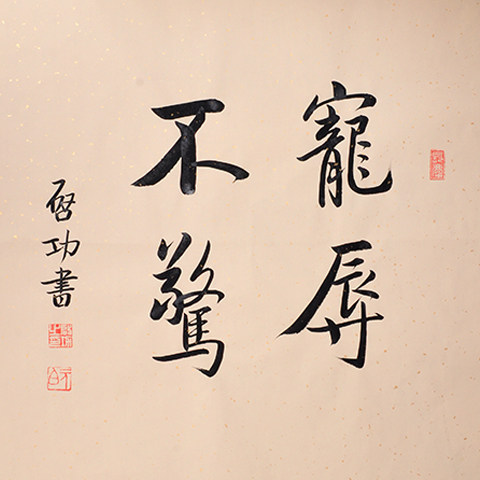 寵辱
不驚
啓功書